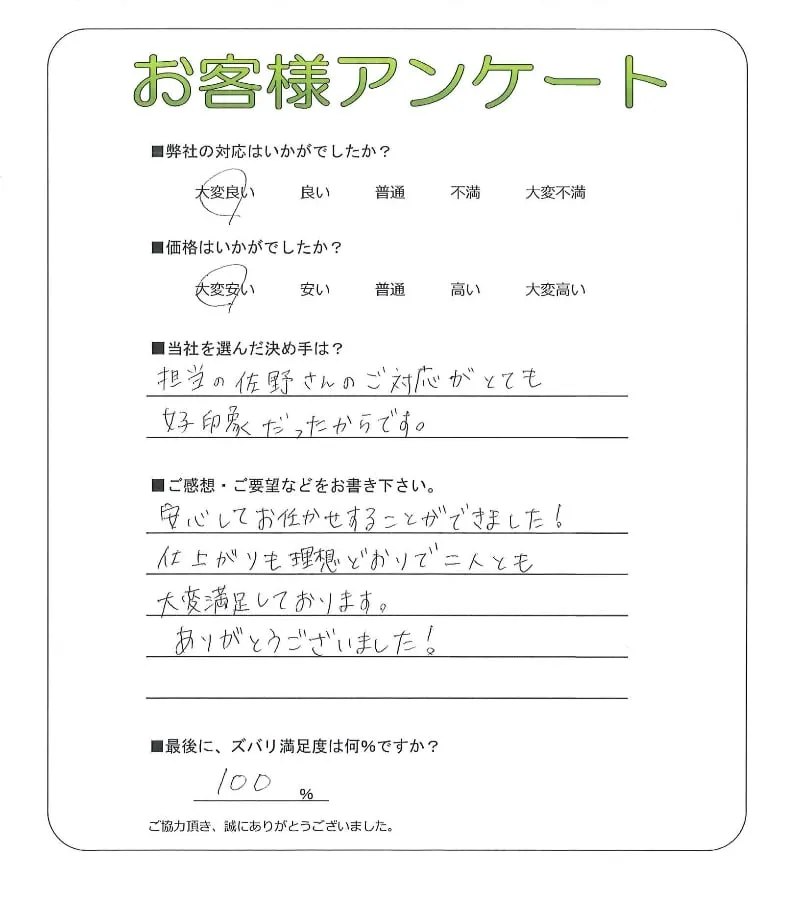 お客様アンケート
■弊社の対応はいかがでしたか？
大変良い 良い 普通 不満 大変不満
■価格はいかがでしたか？
大変安い 安い 普通 高い 大変高い
■当社を選んだ決め手は？
担当の佐野さんのご対応がとても
好印象だったからです。
■ご感想・ご要望などをお書き下さい。
安心してお任かせすることができました！
仕上がりも理想どおりで二人とも
大変満足しております。
ありがとうございました！
■最後に、ズバリ満足度は何％ですか？
100 ％
ご協力頂き、誠にありがとうございました。